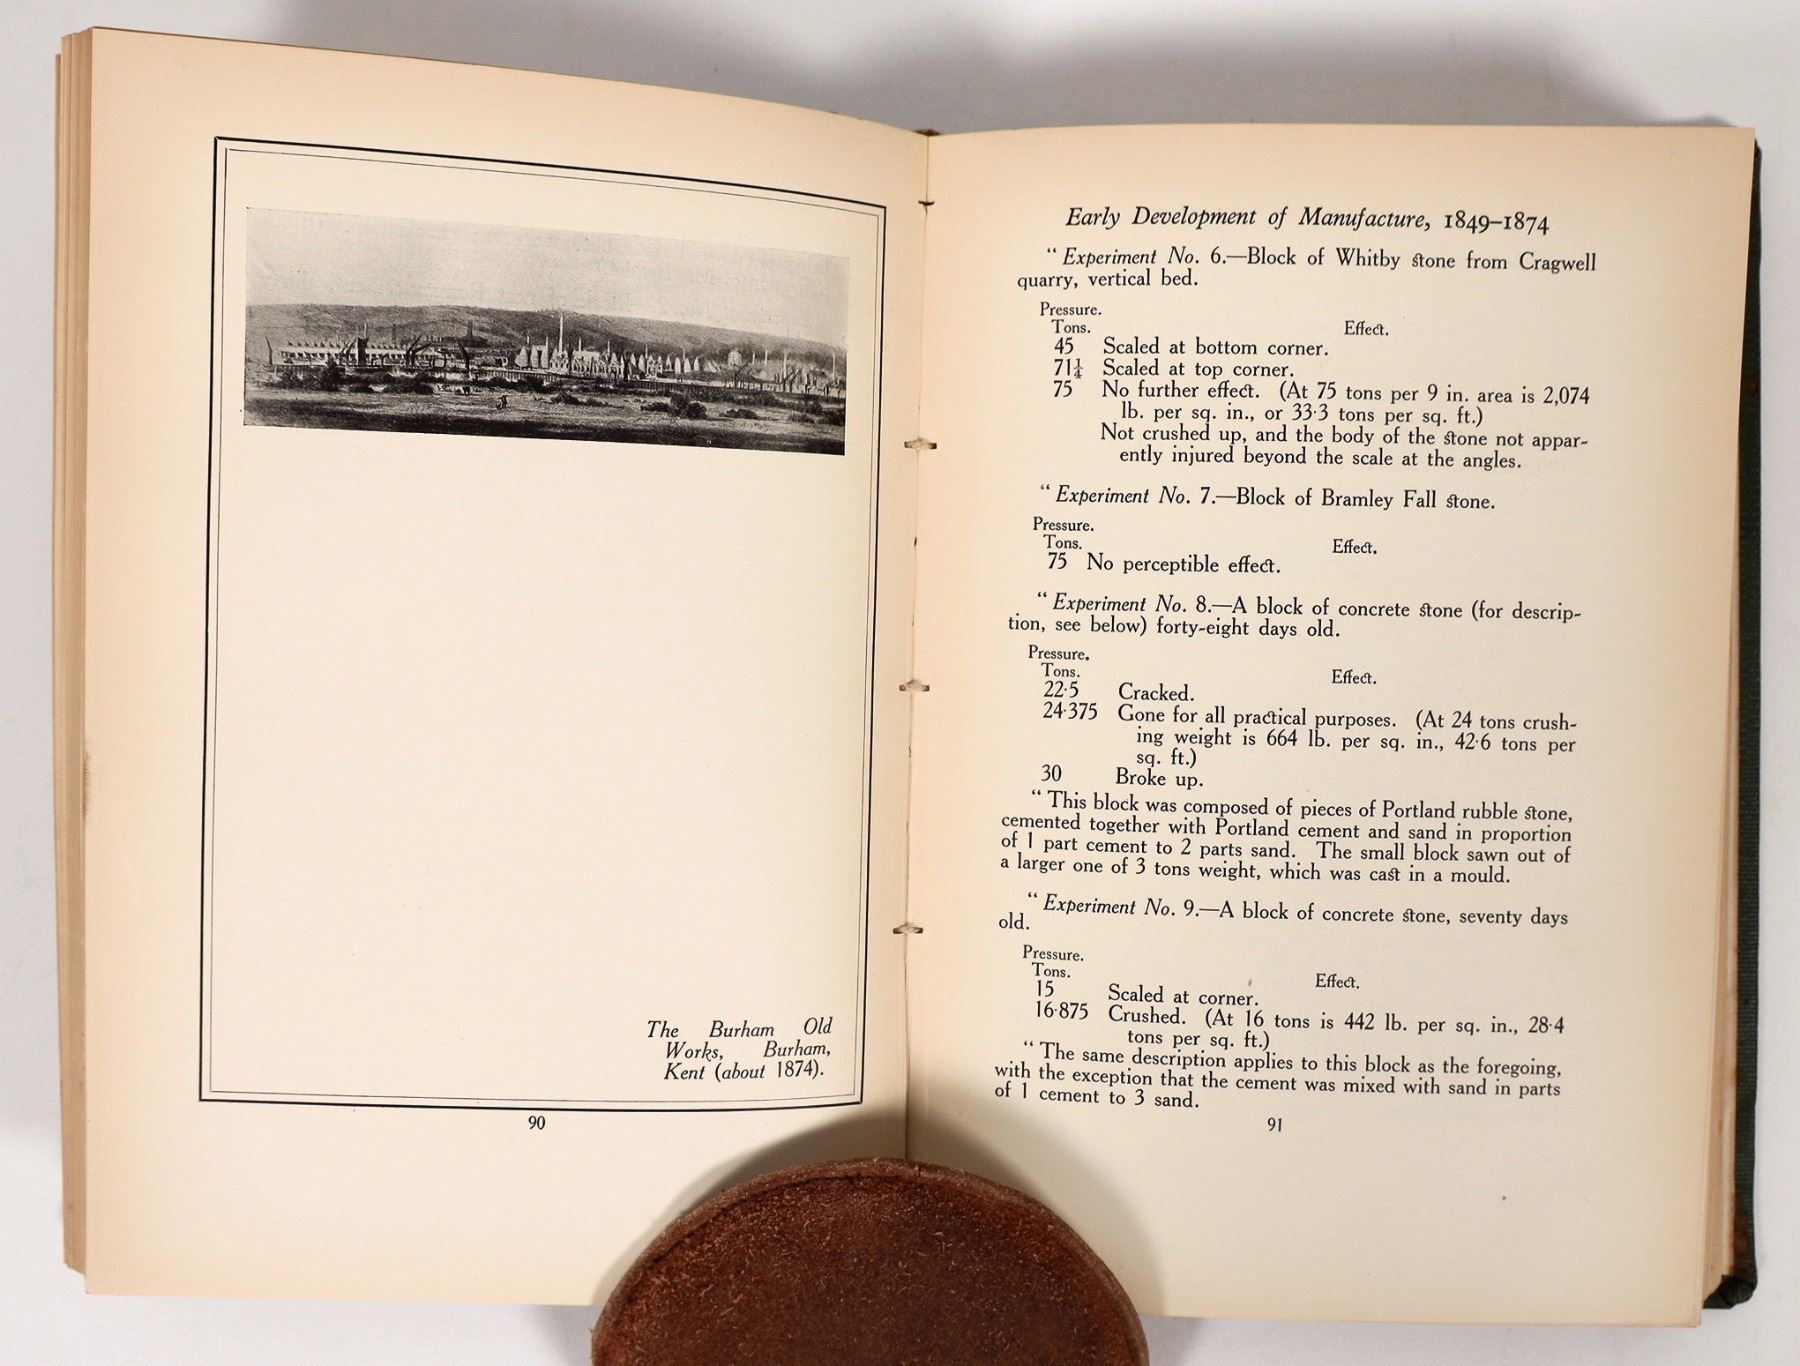 The Burham Old
Works, Burham,
Kent (about 1874).
90
Early Development of Manufacture, 1849–1874
“Experiment No. 6.—Block of Whitby stone from Cragwell
quarry, vertical bed.
Pressure.
Tons. Effect.
45 Scaled at bottom corner.
71¼ Scaled at top corner.
75 No further effect. (At 75 tons per 9 in. area is 2,074
lb. per sq. in., or 33·3 tons per sq. ft.)
Not crushed up, and the body of the stone not appar-
ently injured beyond the scale at the angles.
“Experiment No. 7.—Block of Bramley Fall stone.
Pressure.
Tons. Effect.
75 No perceptible effect.
“Experiment No. 8.—A block of concrete stone (for descrip-
tion, see below) forty-eight days old.
Pressure.
Tons. Effect.
22·5 Cracked.
24·375 Gone for all practical purposes. (At 24 tons crush-
ing weight is 664 lb. per sq. in., 42·6 tons per
sq. ft.)
30 Broke up.
“This block was composed of pieces of Portland rubble stone,
cemented together with Portland cement and sand in proportion
of 1 part cement to 2 parts sand. The small block sawn out of
a larger one of 3 tons weight, which was cast in a mould.
“Experiment No. 9.—A block of concrete stone, seventy days
old.
Pressure.
Tons. Effect.
15 Scaled at corner.
16·875 Crushed. (At 16 tons is 442 lb. per sq. in., 28·4
tons per sq. ft.)
“The same description applies to this block as the foregoing,
with the exception that the cement was mixed with sand in parts
of 1 cement to 3 sand.
91